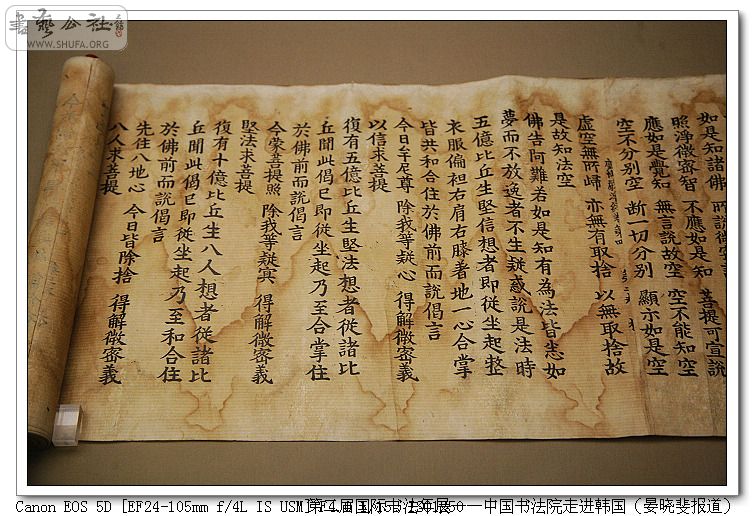 書藝公社
WWW.SHUFA.ORG
如是知諸佛
照淨微密智 不應如是知 菩提可宣說
應如是覺知 無言說故空 空不能知空
空不分别空 断一切分别 顯示如是空
虛空無所歸 亦無有取捨 以無取捨故
是故知法空
佛告阿難若如是知有為法皆悉如
夢而不放逸者不生疑惑說是法時
五億比丘生堅信想者即從坐起整
衣服偏袒右肩右膝著地一心合掌
皆共和合住於佛前而說偈言
今日牟尼尊 除我等疑心 得解微密義
以信求菩提
復有五億比丘堅法想者從諸比
丘聞此偈已即從坐起乃至合掌住
於佛前而說偈言
今蒙菩提照 除我等疑冥 得解微密義
堅法求菩提
復有十億比丘生八人想者從諸比
丘聞此偈已即從坐起乃至和合住
於佛前而說偈言
先住八地心 今日皆除捨 得解微密義
八人求菩提
Canon EOS 5D [EF24-105mm f/4L IS USM] 第二届国际书法年展——中国书法院走进韩国（晏晓斐报道）